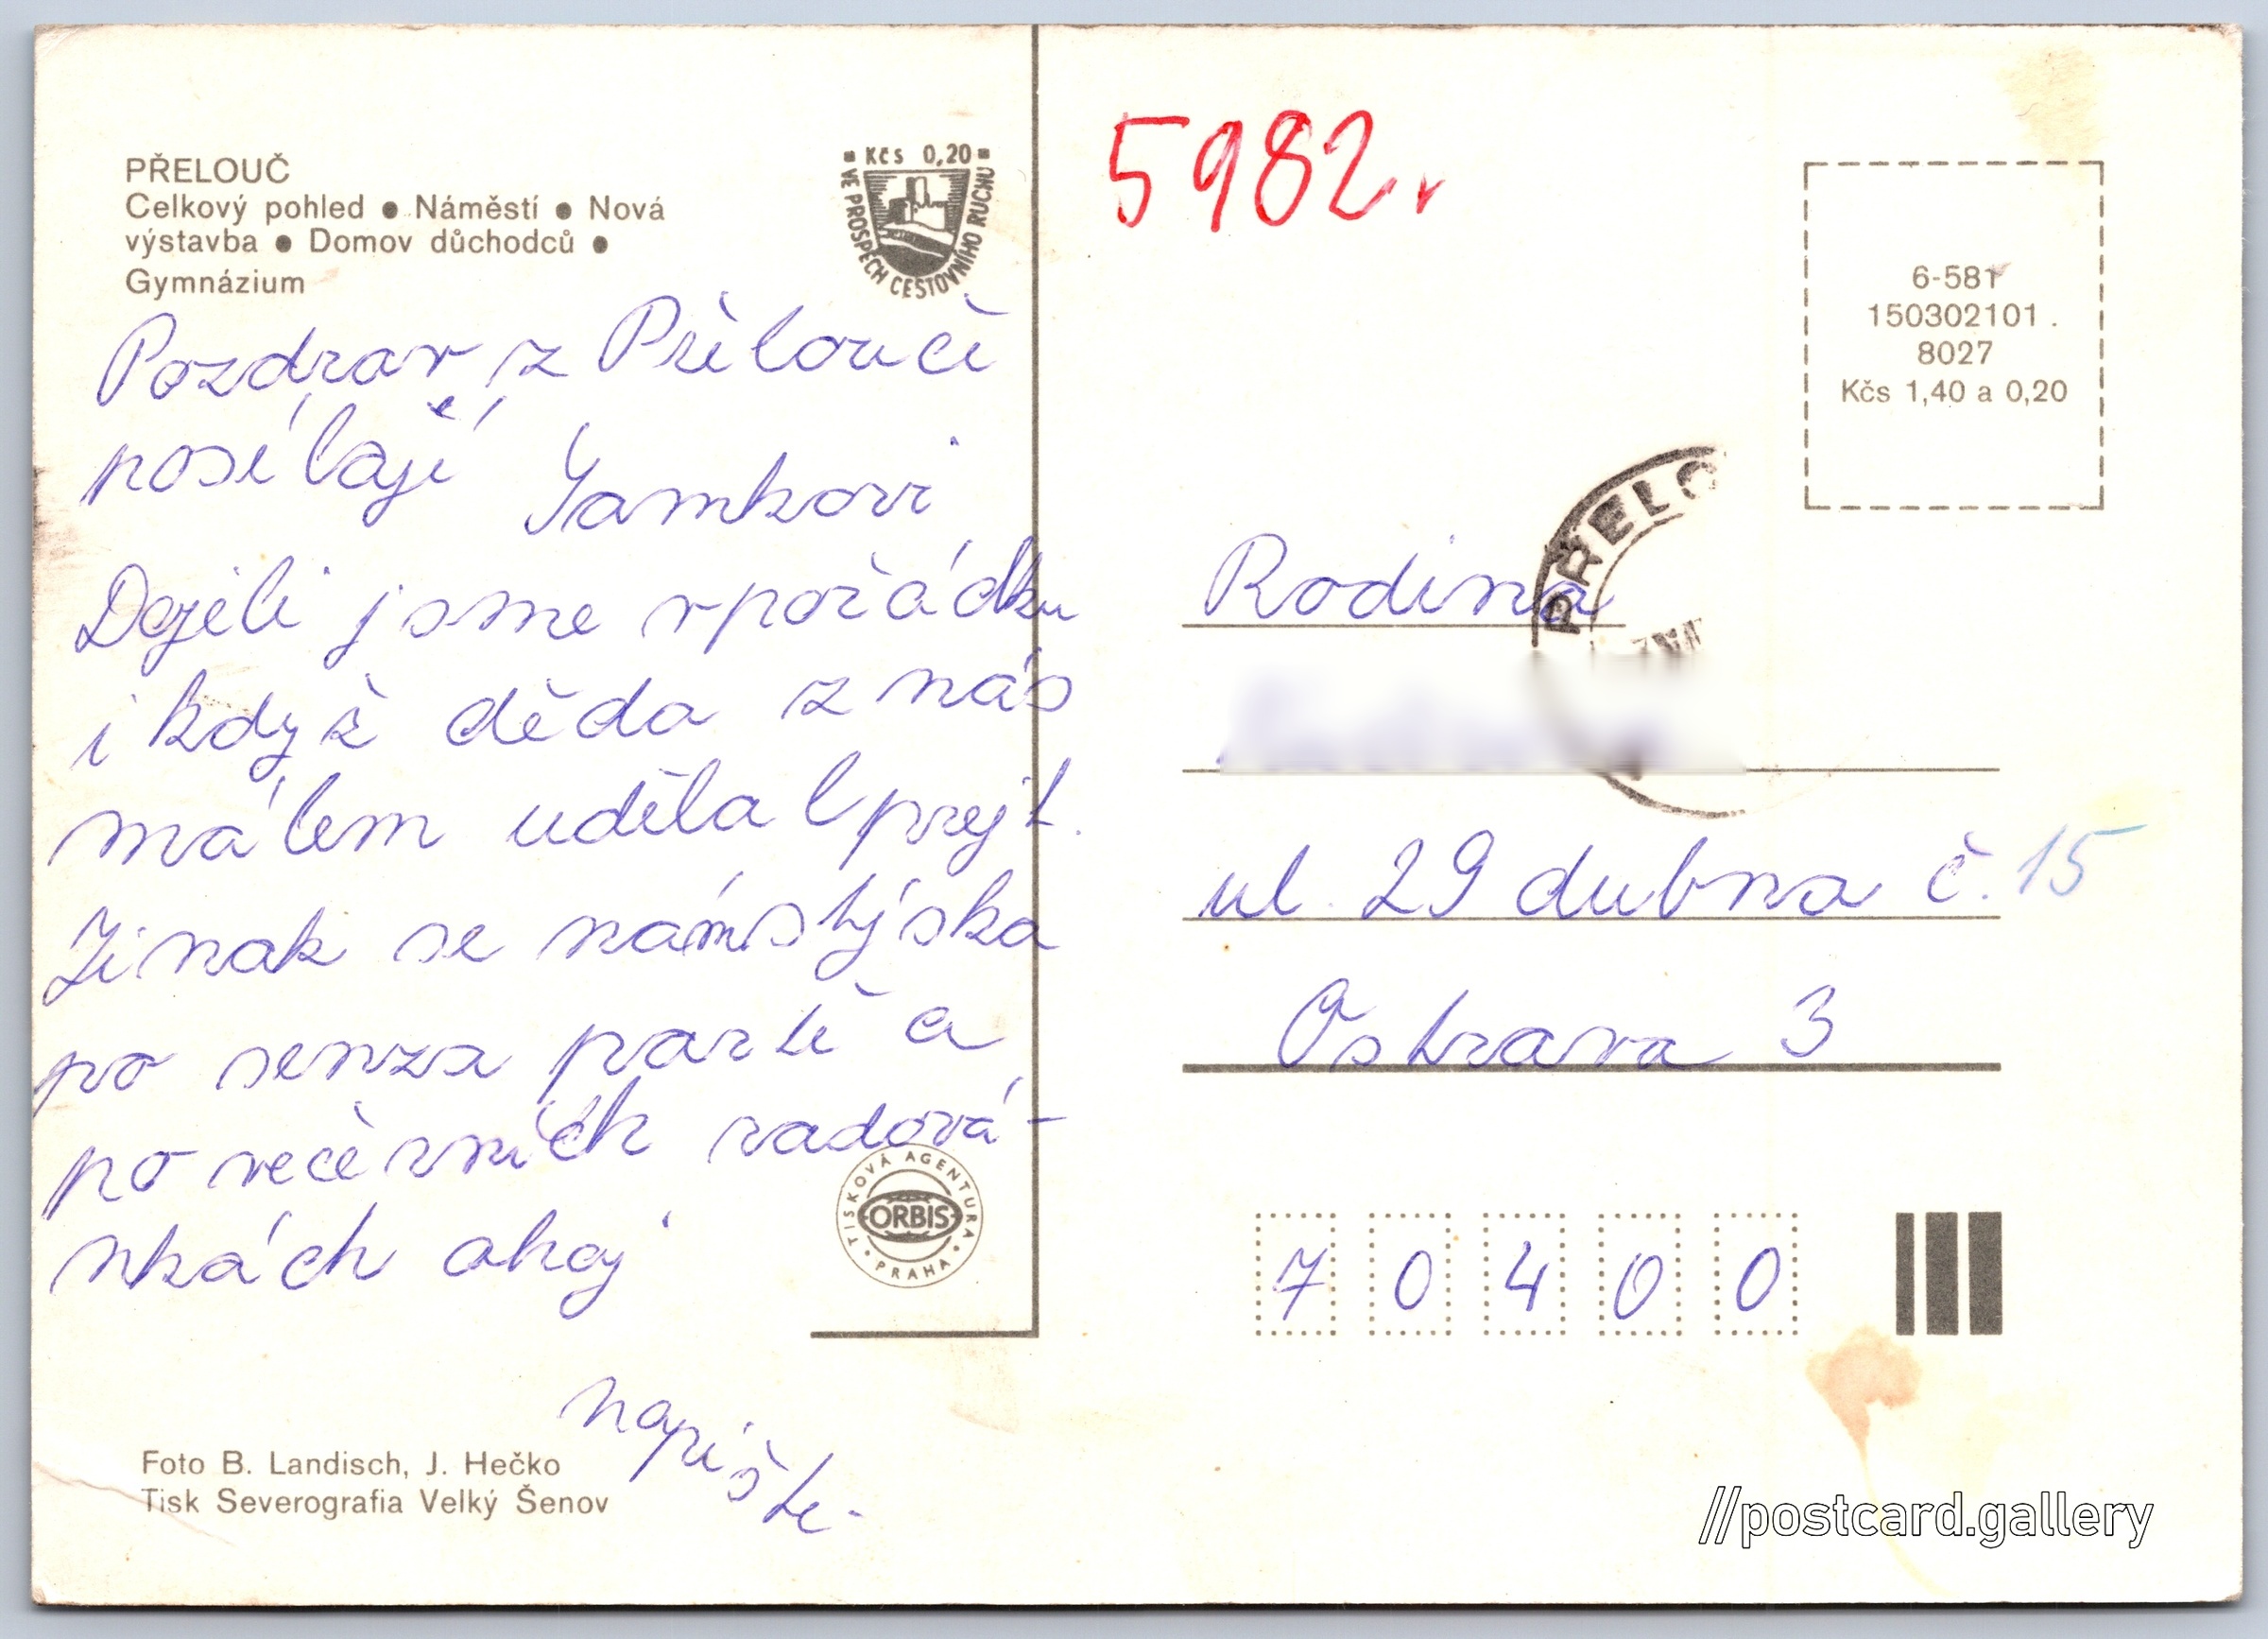 PŘELOUČ
Celkový pohled ● Náměstí ● Nová
výstavba ● Domov důchodců ●
Gymnázium
Kčs 0,20
VE PROSPĚCH CESTOVNÍHO RUCHU
Pozdrav z Přelouče
posílají Yamkovi
Dojeli jsme vpořádku
i když děda z nás
málem udělal prejt.
Jinak se námstýska
po senza partě a
po večerních radová-
nkách ahoj
napište.
TISKOVÁ AGENTURA
ORBIS
PRAHA
Foto B. Landisch, J. Hečko
Tisk Severografia Velký Šenov
5982
6-581
150302101.
8027
Kčs 1,40 a 0,20
PŘELO
Rodina
ul. 29 dubna č. 15
Ostrava 3
7 0 4 0 0
//postcard.gallery